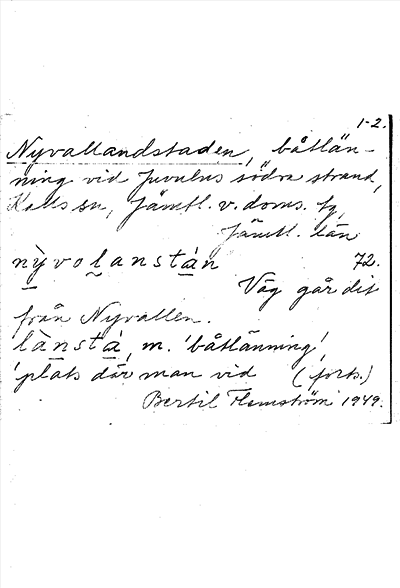 1-2.
Nyvallandstaden, båtlän-
ning vid Juvulns södra strand,
Kalls sn, Jämtl. v. doms. tg,
Jämtl. län
nỳvolanstán 72.
Väg går dit
från Nyvallen.
lànstá, m. 'båtlänning',
'plats där man vid (forts.)
Bertil Flemström 1949.